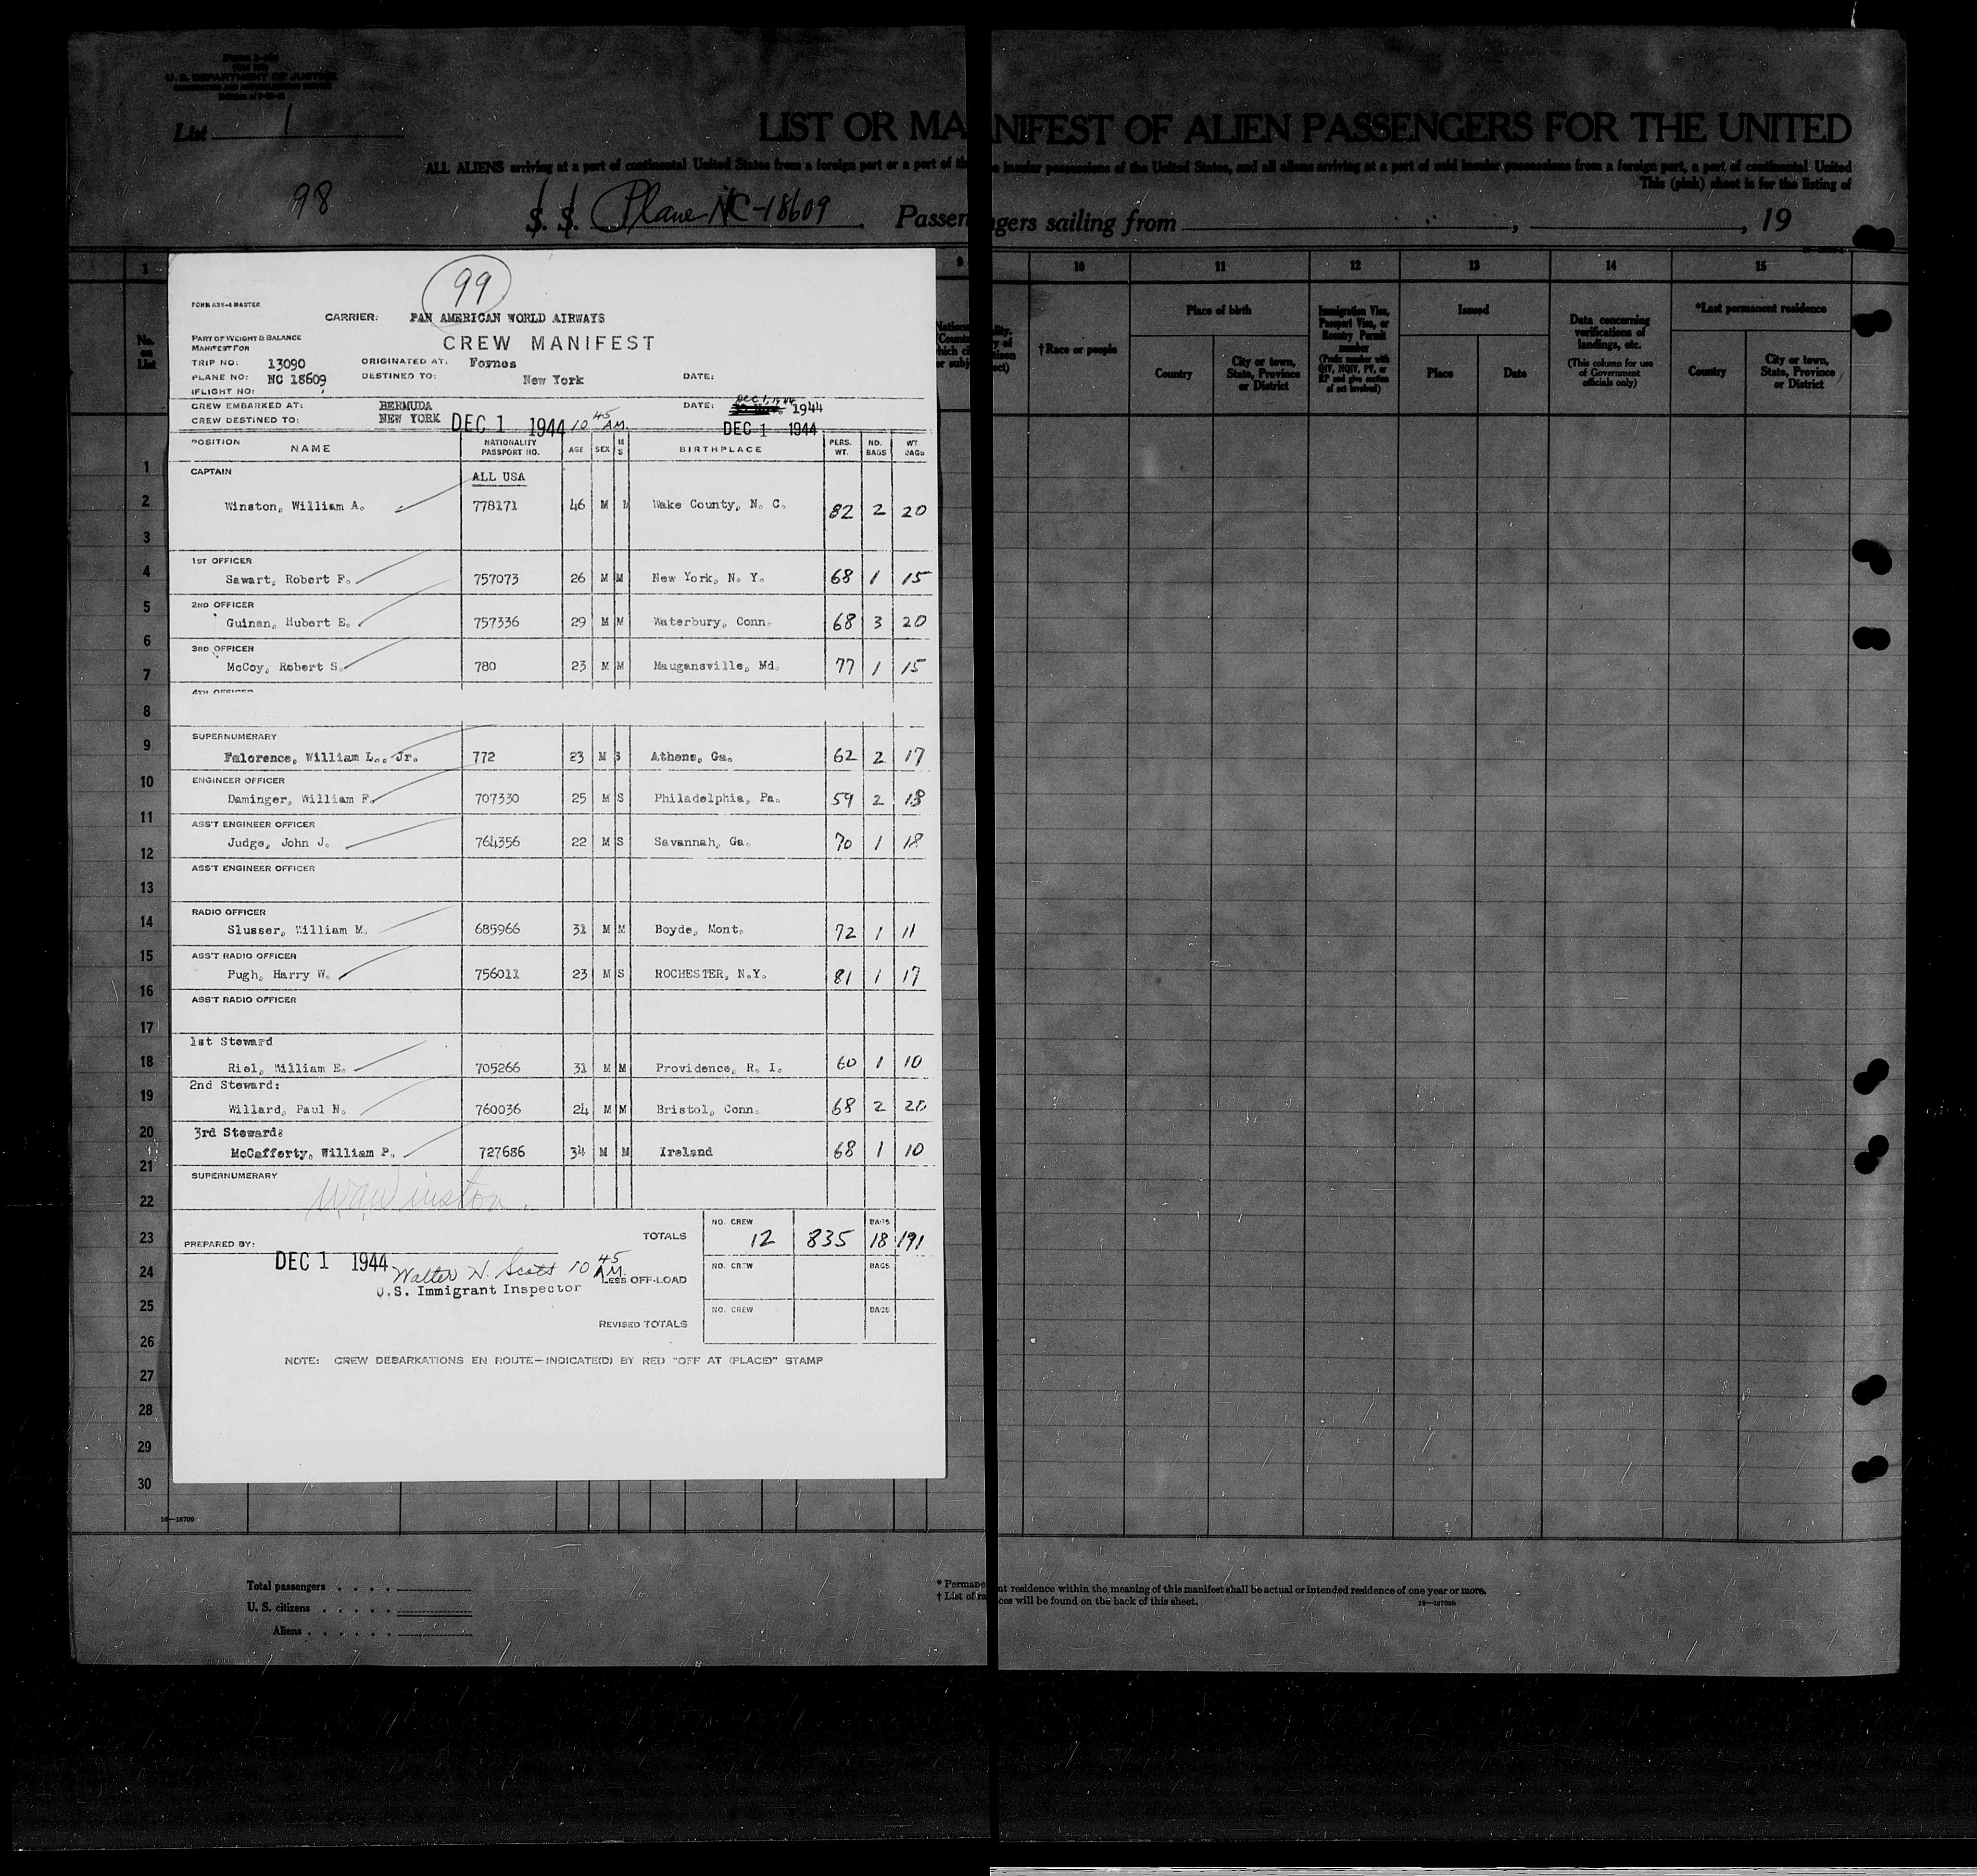 U. S. DEPARTMENT OF JUSTICE
List 1
LIST OR MANIFEST OF ALIEN PASSENGERS FOR THE UNITED
ALL ALIENS arriving at a port of continental United States from a foreign port or a port of the insular possessions of the United States, and all aliens arriving at a port of said insular possessions from a foreign port, a port of continental United
This (pink) sheet is for the listing of
98
S. S. Plane NC-18609 . Passengers sailing from , , 19
1 9 10 11 12 13 14 15
No. on List
†Race or people
Place of birth
Country
City or town, State, Province or District
Immigration Visa, Passport Visa, or Reentry Permit number
(Prefix number with QIV, NQIV, PV, or RP and give section of act involved)
Issued
Place
Date
Data concerning verifications of landings, etc.
(This column for use of Government officials only)
*Last permanent residence
Country
City or town, State, Province or District
99
CARRIER: PAN AMERICAN WORLD AIRWAYS
PART OF WEIGHT & BALANCE
MANIFEST FOR
CREW MANIFEST
TRIP NO: 13090 ORIGINATED AT: Foynes
PLANE NO: NC 18609 DESTINED TO: New York DATE:
(FLIGHT NO:
CREW EMBARKED AT: BERMUDA DATE: Dec 1, 1944 1944
CREW DESTINED TO: NEW YORK DEC 1 1944 10 45 AM. DEC 1 1944
POSITION NAME NATIONALITY PASSPORT NO. AGE SEX M S BIRTHPLACE PERS. WT. NO. BAGS WT BAGS
CAPTAIN ALL USA
Winston, William A. 778171 46 M M Wake County, N. C. 82 2 20
1ST OFFICER
Sawart, Robert F. 757073 26 M M New York, N. Y. 68 1 15
2ND OFFICER
Guinan, Hubert E. 757336 29 M M Waterbury, Conn. 68 3 20
3RD OFFICER
McCoy, Robert S. 780 23 M M Maugansville, Md. 77 1 15
4TH OFFICER
SUPERNUMERARY
Falorence, William L., Jr. 772 23 M S Athens, Ga. 62 2 17
ENGINEER OFFICER
Daminger, William F. 707330 25 M S Philadelphia, Pa. 59 2 18
ASS'T ENGINEER OFFICER
Judge, John J. 764356 22 M S Savannah, Ga. 70 1 18
ASS'T ENGINEER OFFICER
RADIO OFFICER
Slusser, William M. 685966 31 M M Boyde, Mont. 72 1 11
ASS'T RADIO OFFICER
Pugh, Harry W. 756011 23 M S ROCHESTER, N.Y. 81 1 17
ASS'T RADIO OFFICER
1st Steward
Riel, William E. 705266 31 M M Providence, R. I. 60 1 10
2nd Steward:
Willard, Paul N. 760036 24 M M Bristol, Conn. 68 2 20
3rd Steward:
McCafferty, William P. 727686 34 M M Ireland 68 1 10
SUPERNUMERARY
W.A. Winston.
PREPARED BY: TOTALS NO. CREW 12 835 BAGS 18 191
DEC 1 1944 Walter N. Scott 10 45 AM.
U.S. Immigrant Inspector
LESS OFF-LOAD NO. CREW BAGS
REVISED TOTALS NO. CREW BAGS
NOTE: CREW DEBARKATIONS EN ROUTE—INDICATE(D) BY RED "OFF AT (PLACE)" STAMP
1
2
3
4
5
6
7
8
9
10
11
12
13
14
15
16
17
18
19
20
21
22
23
24
25
26
27
28
29
30
16—18709
Total passengers
U. S. citizens
Aliens
* Permanent residence within the meaning of this manifest shall be actual or intended residence of one year or more.
† List of races will be found on the back of this sheet.